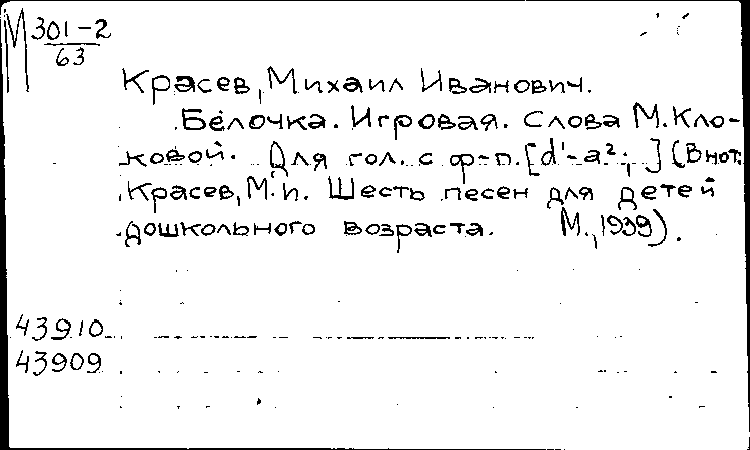 М 301-2
63
Красев, Михаил Иванович.
Белочка. Игровая. Слова М. Кло-
ковой. Для гол. с ф-п. [d¹-a²; ] (В нот:
Красев, М. И. Шесть песен для детей
дошкольного возраста. М., 1939).
43910
43909